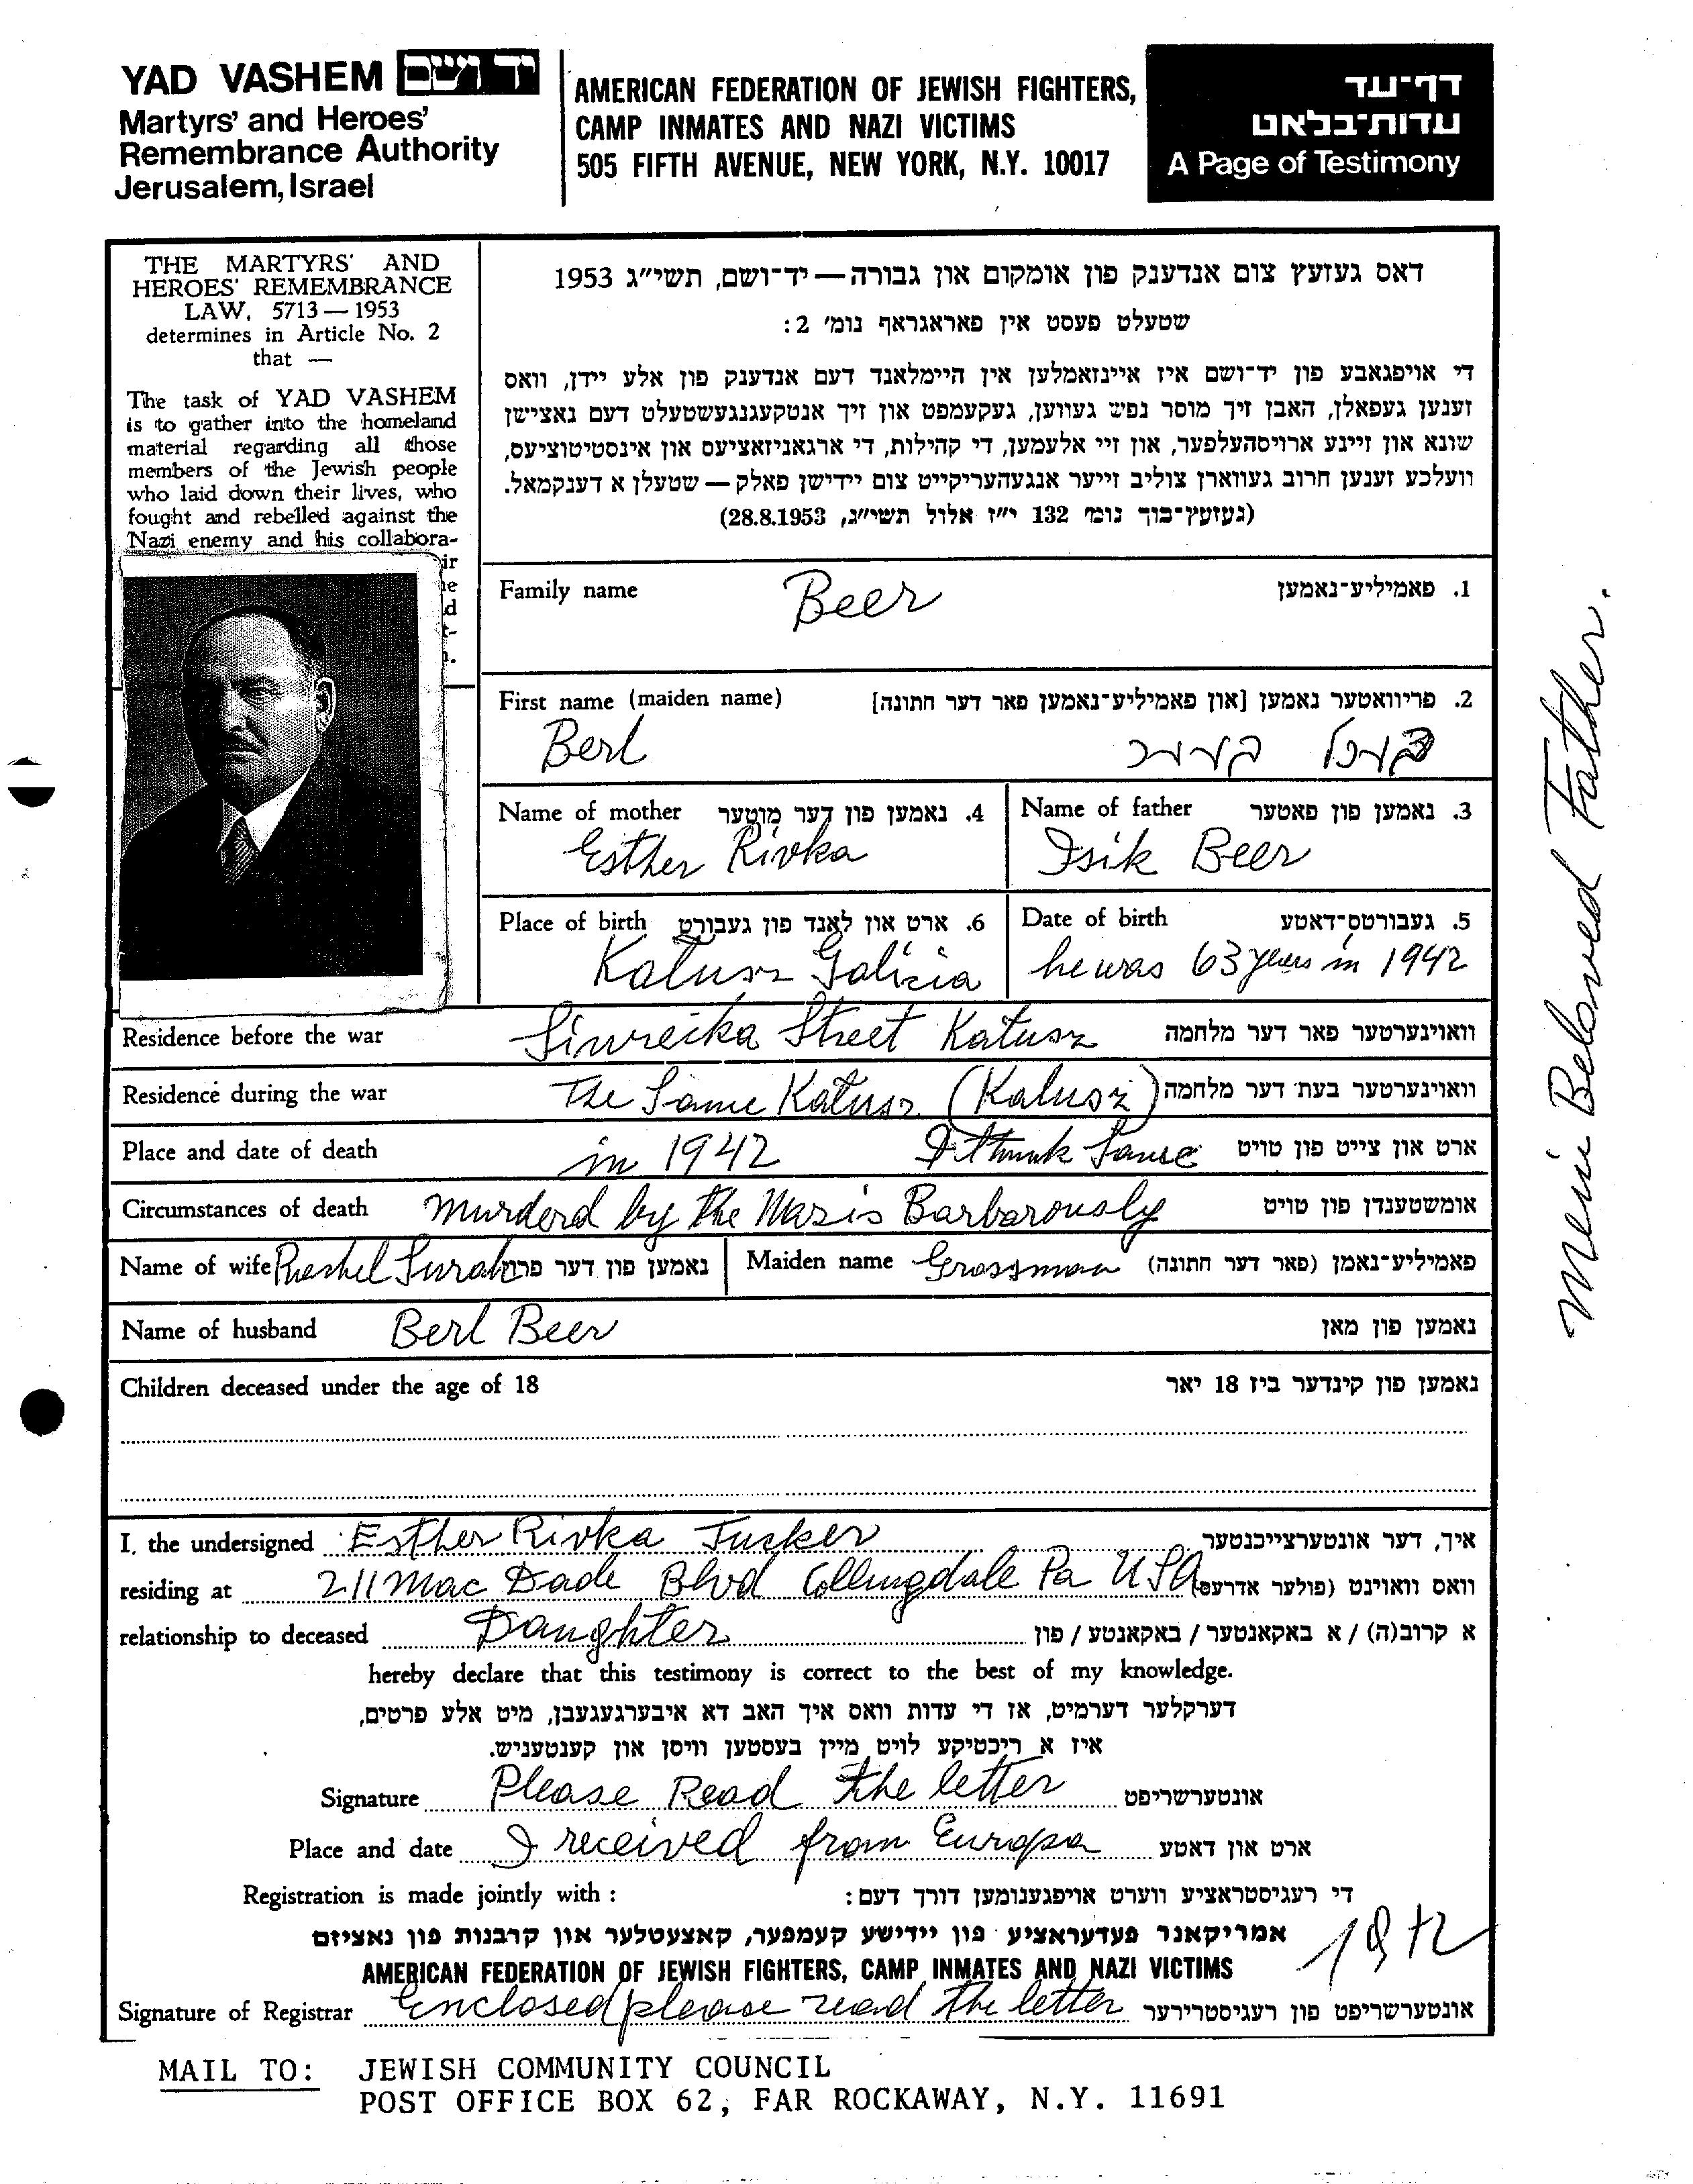 YAD VASHEM יד ושם
Martyrs' and Heroes'
Remembrance Authority
Jerusalem, Israel
AMERICAN FEDERATION OF JEWISH FIGHTERS,
CAMP INMATES AND NAZI VICTIMS
505 FIFTH AVENUE, NEW YORK, N.Y. 10017
דף-עד
עדות-בלאט
A Page of Testimony
THE MARTYRS' AND
HEROES' REMEMBRANCE
LAW, 5713 — 1953
determines in Article No. 2
that —
The task of YAD VASHEM
is to gather into the homeland
material regarding all those
members of the Jewish people
who laid down their lives, who
fought and rebelled against the
Nazi enemy and his collabora-
ir
d
t-
דאס געזעץ צום אנדענק פון אומקום און גבורה — יד-ושם, תשי"ג 1953
שטעלט פעסט אין פאראגראף נומ' 2:
די אויפגאבע פון יד-ושם איז איינזאמלען אין היימלאנד דעם אנדענק פון אלע יידן, וואס
זענען געפאלן, האבן זיך מוסר נפש געווען, געקעמפט און זיך אנטקעגנגעשטעלט דעם נאצישן
שונא און זיינע ארויסהעלפער, און זיי אלעמען, די קהילות, די ארגאניזאציעס און אינסטיטוציעס,
וועלכע זענען חרוב געווארן צוליב זייער אנגעהעריקייט צום יידישן פאלק — שטעלן א דענקמאל.
(געזעץ-בוך נומ' 132 י"ז אלול תשי"ג, 28.8.1953)
Family name Beer 1. פאמיליע-נאמען
First name (maiden name) 2. פריוואטער נאמען [און פאמיליע-נאמען פאר דער חתונה]
Berl בערל בערר
Name of mother 4. נאמען פון דער מוטער
Esther Rivka
Name of father 3. נאמען פון פאטער
Isik Beer
Place of birth 6. ארט און לאנד פון געבורט
Kalusz Galizia
Date of birth 5. געבורטס-דאטע
he was 63 years in 1942
Residence before the war Siwreika Street Katusz וואוינערטער פאר דער מלחמה
Residence during the war The Same Katusz (Kalusz) וואוינערטער בעת דער מלחמה
Place and date of death in 1942 I think Same ארט און צייט פון טויט
Circumstances of death murderd by the Nazis Barbarously אומשטענדן פון טויט
Name of wife Rashel Surah נאמען פון דער פרוי Maiden name Grossman פאמיליע-נאמן (פאר דער חתונה)
Name of husband Berl Beer נאמען פון מאן
Children deceased under the age of 18 נאמען פון קינדער ביז 18 יאר
I, the undersigned Esther Rivka Tusker איך, דער אונטערצייכנטער
residing at 211 Mac Dade Blvd Collingdale Pa USA וואס וואוינט (פולער אדרעס)
relationship to deceased Daughter א קרוב(ה) / א באקאנטער / באקאנטע / פון
hereby declare that this testimony is correct to the best of my knowledge.
דערקלער דערמיט, אז די עדות וואס איך האב דא איבערגעגעבן, מיט אלע פרטים,
איז א ריכטיקע לויט מיין בעסטען וויסן און קענטעניש.
Signature Please Read the letter אונטערשריפט
Place and date I received from Europa ארט און דאטע
Registration is made jointly with : די רעגיסטראציע ווערט אויפגענומען דורך דעם:
אמריקאנר פעדעראציע פון יידישע קעמפער, קאצעטלער און קרבנות פון נאציזם
AMERICAN FEDERATION OF JEWISH FIGHTERS, CAMP INMATES AND NAZI VICTIMS
Signature of Registrar Enclosed please read the letter אונטערשריפט פון רעגיסטרירער
MAIL TO: JEWISH COMMUNITY COUNCIL
POST OFFICE BOX 62, FAR ROCKAWAY, N.Y. 11691
Mein Beloved Father.